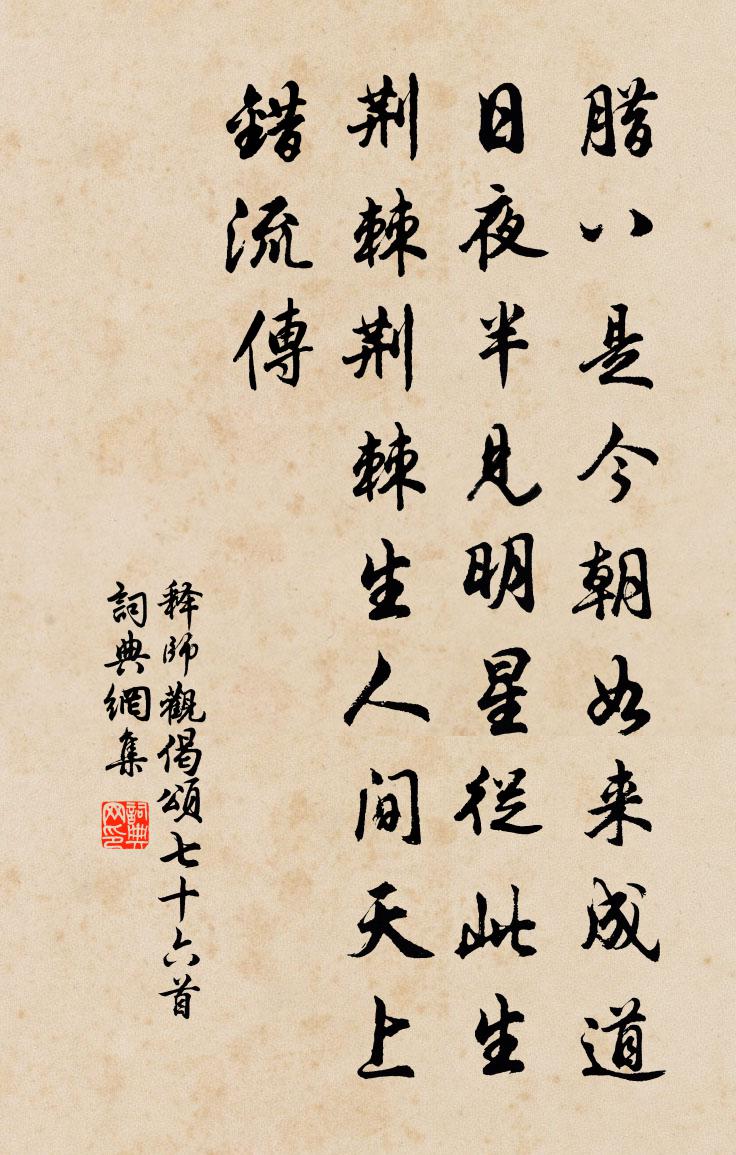 腊八是今朝如来成道
日夜半見明星從此生
荆棘荆棘生人間天上
錯流傳
释師觀偈頌七十六首
詞典網集
詞典网印